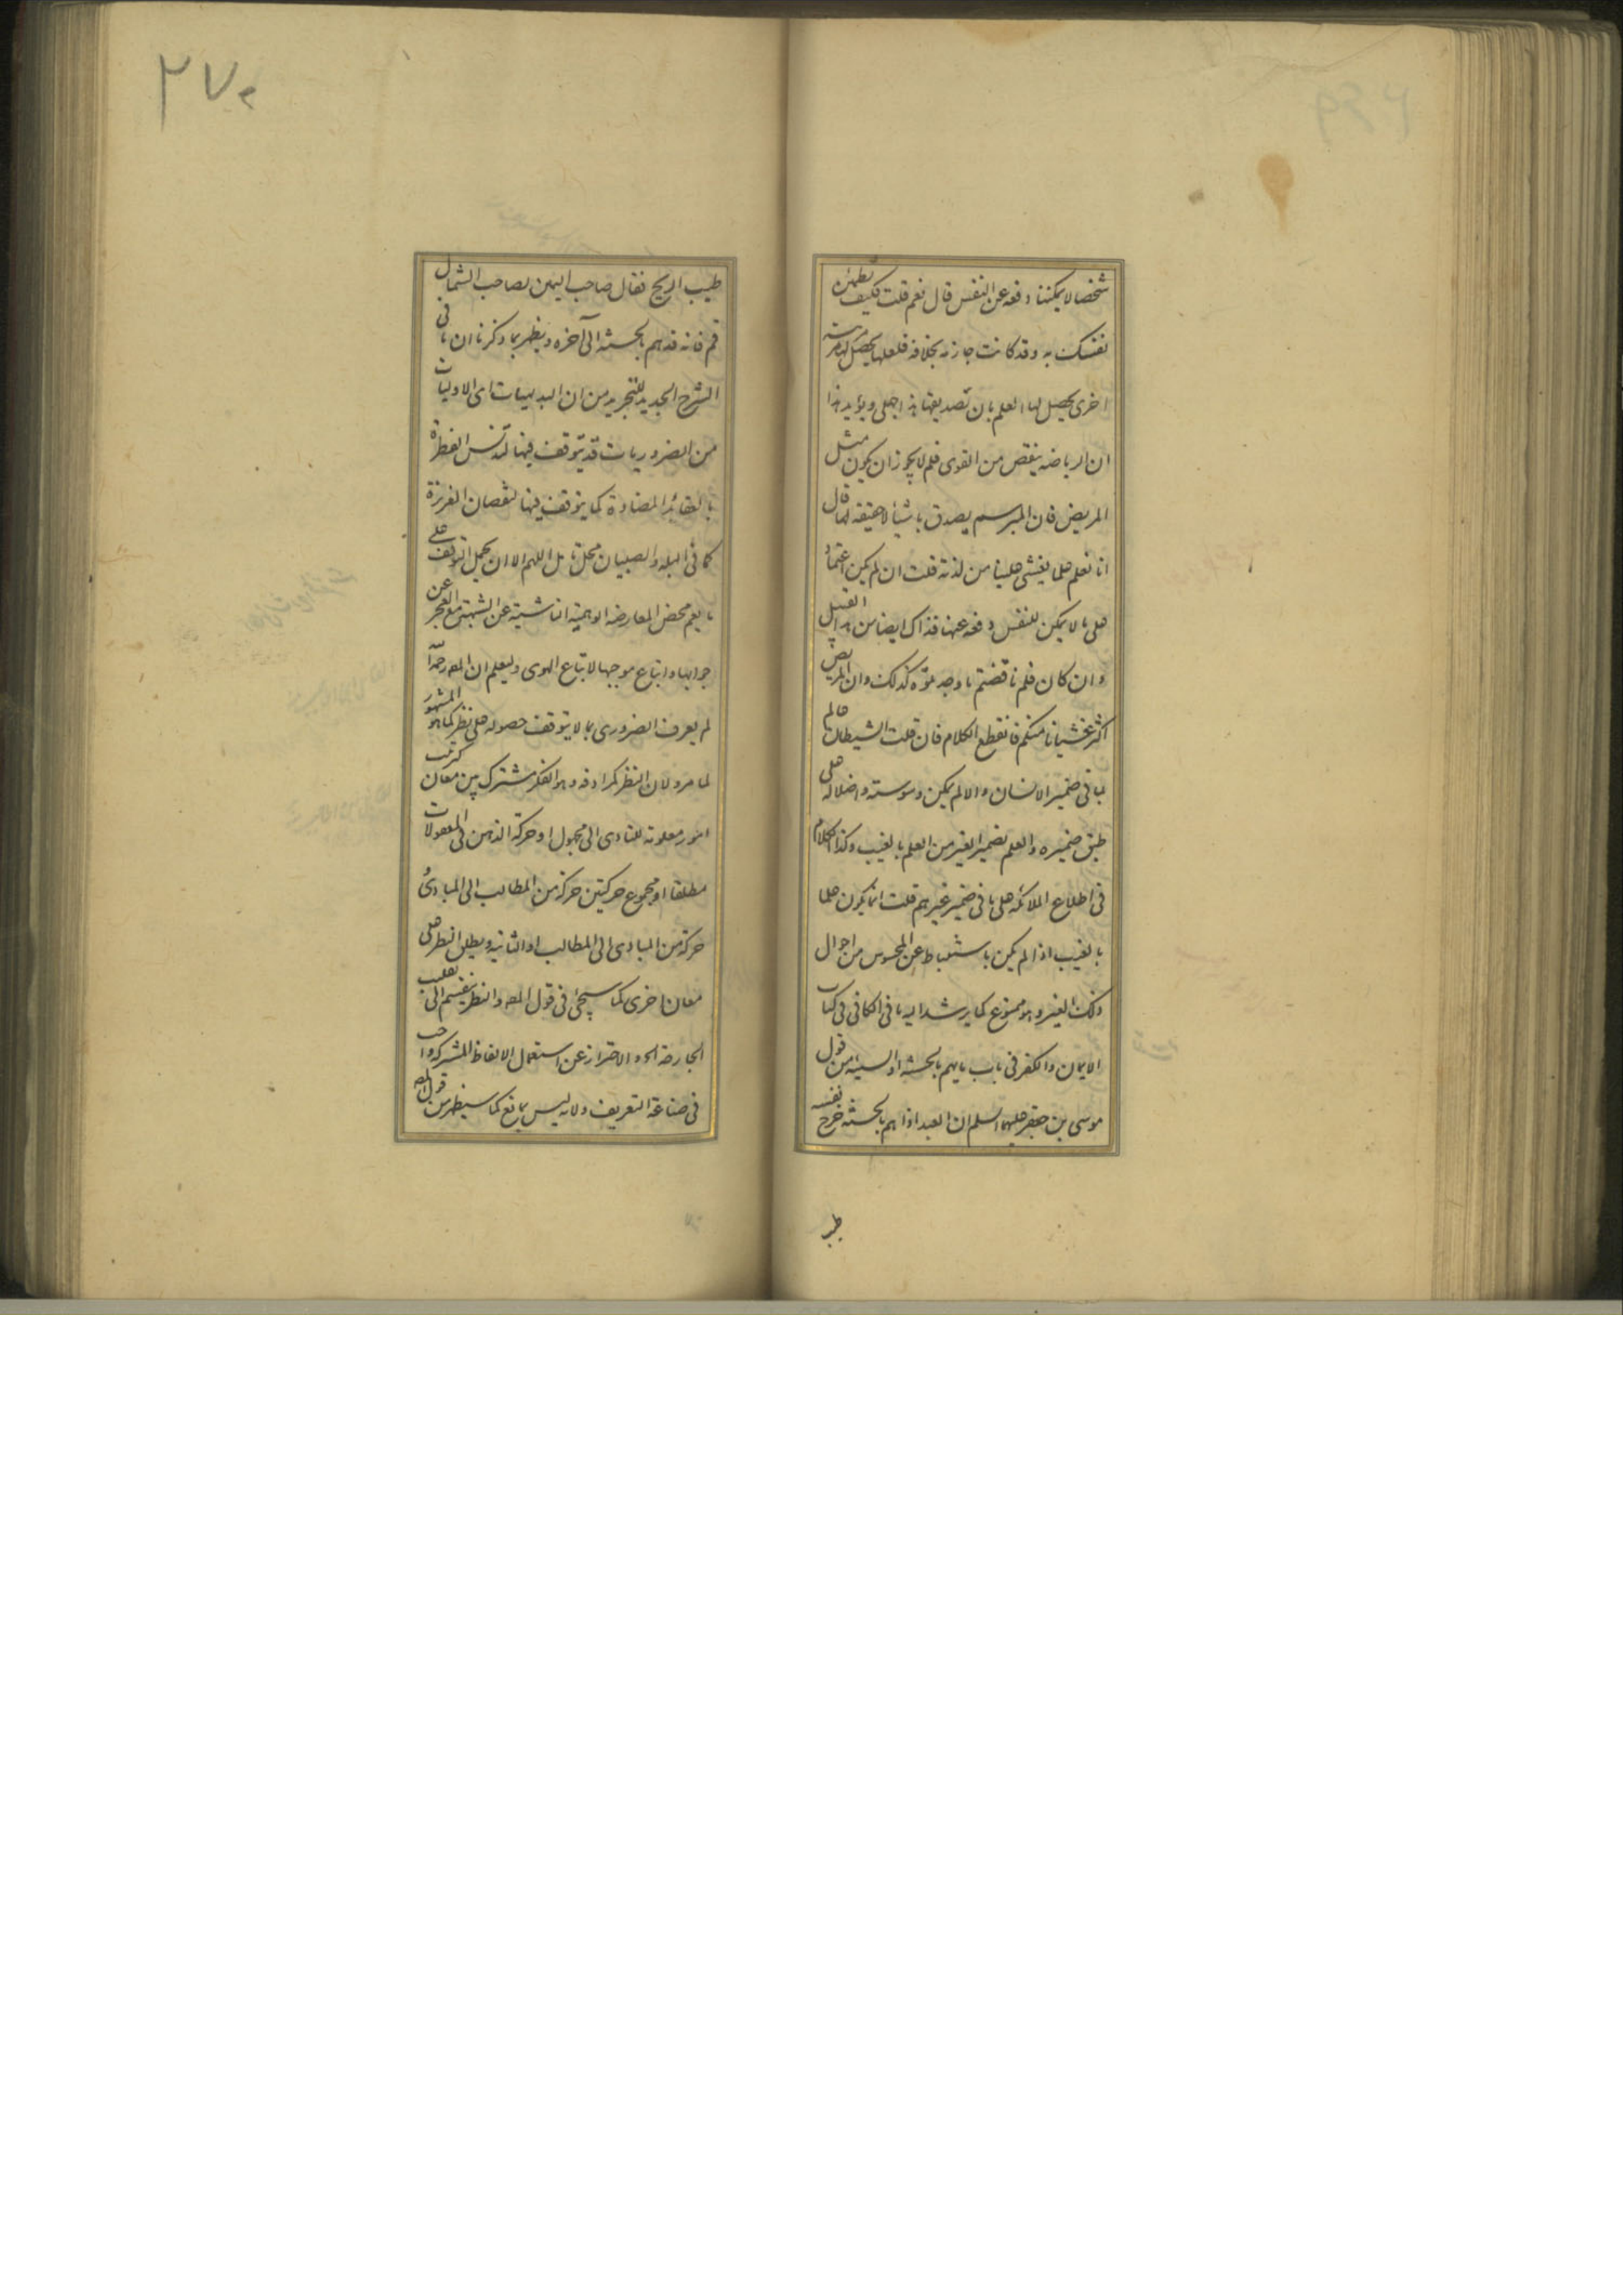 شخصا لا يمكننا دفعه عن النفس قال نعم قلت فكيف تطمئن
نفسك به وقد كانت جازمه بخلافه فلعلها يحصل لها مرتبة
اخرى يحصل لها العلم بان تصديقها هذا جهل ويؤيد هذا
ان الرياضه ينقص من القوى فلم لا يجوز ان يكون مثل
المريض فان المبرسم يصدق باشيا لا حقيقه لها قال
انا نعلم علما يغشى علينا من لذته قلت ان لم يكن اعتماد
على ما لا يمكن للنفس دفعه عنها فذاك ايضا من هذا القبيل
وان كان فلم ناقضتم ما وجد بقوه كذلك وان المريض
اكثر غشيانا منكم فانقطع الكلام فان قلت الشيطان عالم
بما في ضمير الانسان والا لم يكن وسوسته واضلاله على
طبق ضميره والعلم بضمير الغير من العلم بالغيب وكذا الكلام
في اطلاع الملائكه على ما في ضمير غيرهم قلت انما يكون علما
بالغيب اذا لم يكن باستنباط عن المحسوس من احوال
ذلك الغير وهو ممنوع كما يرشد اليه ما في الكافي في كتاب
الايمان والكفر في باب ما يهم بالحسنه او السيئه من قول
موسى بن جعفر عليهما السلم ان العبد اذا هم بالحسنه خرج نفسه
طيب
٢٧٠
طيب الريح فقال صاحب اليمين لصاحب الشمال
قم فانه قد هم بالحسنه الى آخره ويظهر بما ذكرنا ان ما في
الشرح الجديد للتجريد من ان البديهيات اى الاوليات
من الضروريات قد يتوقف فيها لتدنس الفطرة
بالعقائد المضادة كما يتوقف فيها لنقصان الغريزة
كما في البله والصبيان محل تامل اللهم الا ان يحمل التوقف على
ما يعم محض المعارضه الوهمية الناشية عن الشبهة مع العجز عن
جوابها واتباع موجبها لاتباع الهوى وليعلم ان المص رحمه الله
لم يعرف الضرورى بما لا يتوقف حصوله على نظر كما هو المشهور
لما مر ولان النظر كمرادفه وهو الفكر مشترك بين معان كترتيب
امور معلومة للتادى الى مجهول او حركة الذهن في المعقولات
مطلقا او مجموع حركتين حركة من المطالب الى المبادئ
حركة من المبادى الى المطالب او الثانيه ويطلق النظر على
معان اخرى كما سيجئ في قول المص والنظر ينقسم الى تقليب
الجارحة الخ والاحتراز عن استعمال الالفاظ المشتركة واجب
في صناعة التعريف ولانه ليس بمانع كما سيظهر من قول المص